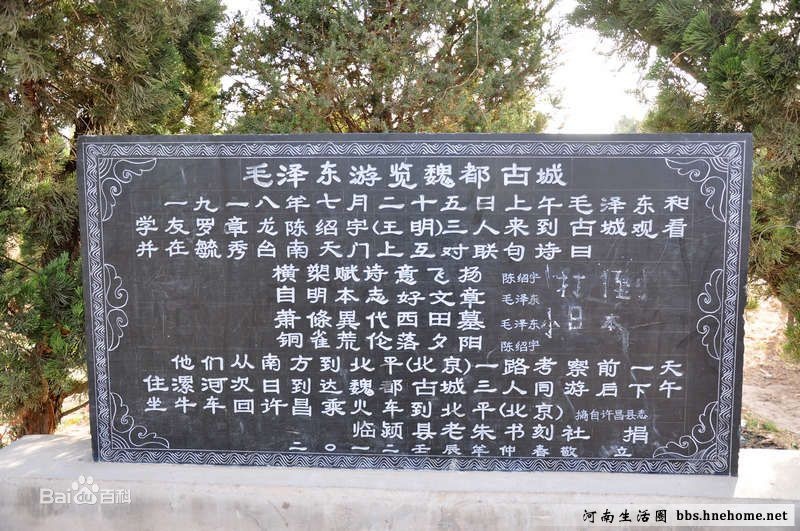 毛泽东游览魏都古城
一九一八年七月二十五日上午毛泽东和
学友罗章龙陈绍宇(王明)三人来到古城观看
并在毓秀台南天门上互对联句诗曰
横槊赋诗意飞扬 陈绍宇
自明本志好文章 毛泽东
萧條異代西田墓 毛泽东
铜雀荒伦落夕阳 陈绍宇
打倒
小日本
他们从南方到北平(北京)一路考察前一天
住漯河次日到达魏都古城三人同游后下午
坐牛车回许昌乘火车到北平(北京) 摘自许昌县志
临颍县老朱书刻社 捐
二〇一二壬辰年仲春敬 立
Bai 百科
河南生活圈 bbs.hnehome.net